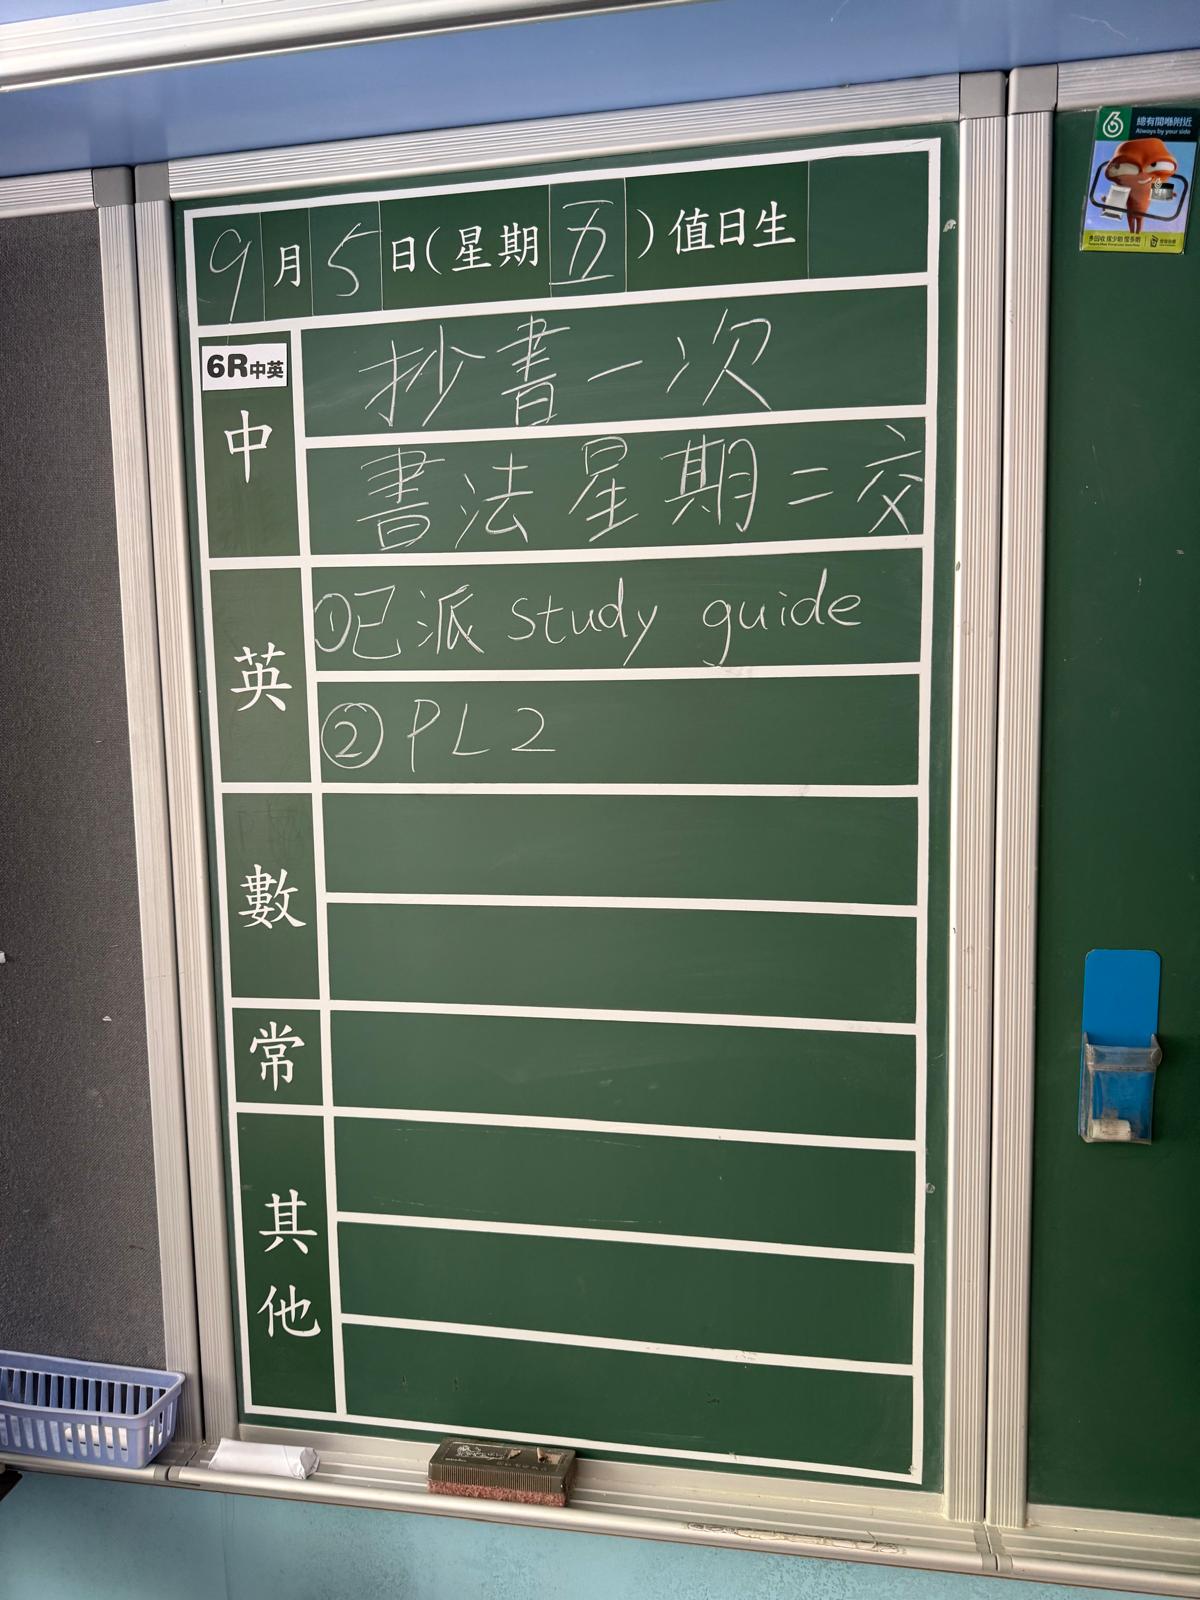 9月5日(星期五)值日生
6R中英
中
抄書一次
書法星期二交
英
①已派 study guide
②PL2
數
常
其他
總有間喺附近
Always by your side